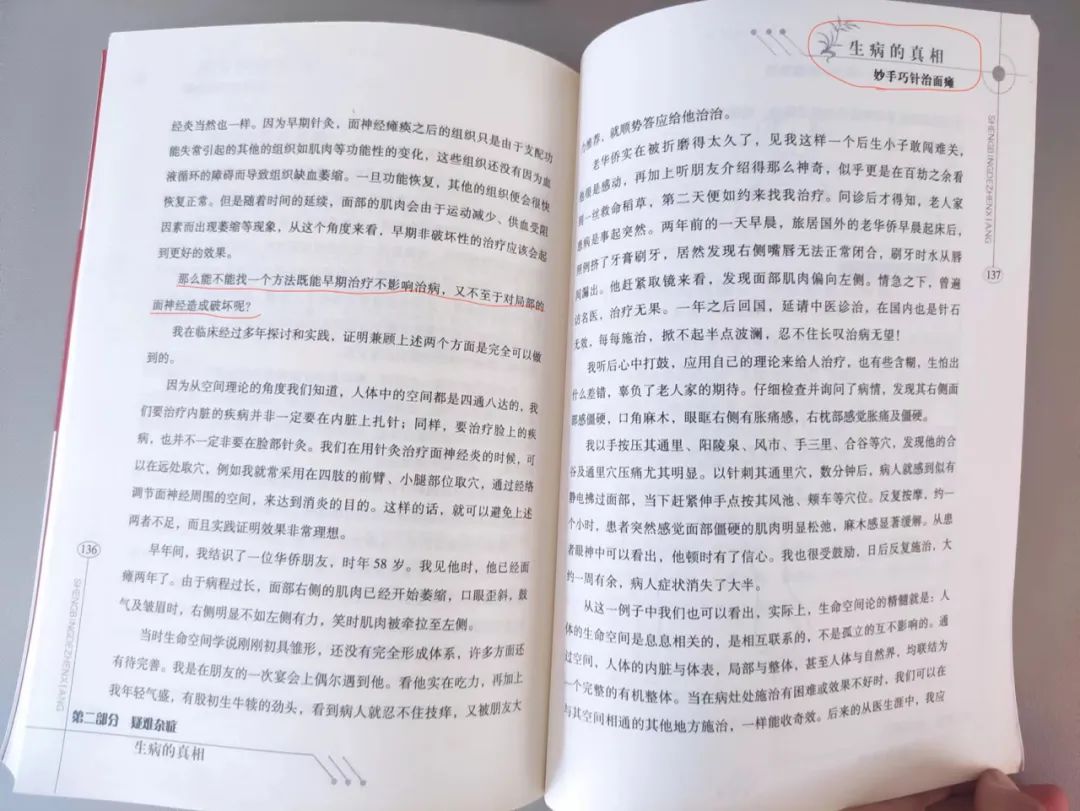 经炎当然也一样。因为早期针灸，面神经瘫痪之后的组织只是由于支配功
能失常引起的其他的组织如肌肉等功能性的变化，这些组织还没有因为血
液循环的障碍而导致组织缺血萎缩。一旦功能恢复，其他的组织便会很快
恢复正常。但是随着时间的延续，面部的肌肉会由于运动减少、供血受阻
因素而出现萎缩等现象，从这个角度来看，早期非破坏性的治疗应该会起
到更好的效果。
那么能不能找一个方法既能早期治疗不影响治病，又不至于对局部的
面神经造成破坏呢？
我在临床经过多年探讨和实践，证明兼顾上述两个方面是完全可以做
到的。
因为从空间理论的角度我们知道，人体中的空间都是四通八达的，我
们要治疗内脏的疾病并非一定要在内脏上扎针；同样，要治疗脸上的疾
病，也并不一定非要在脸部针灸。我们在用针灸治疗面神经炎的时候，可
以在远处取穴，例如我就常采用在四肢的前臂、小腿部位取穴，通过经络
调节面神经周围的空间，来达到消炎的目的。这样的话，就可以避免上述
两者不足，而且实践证明效果非常理想。
早年间，我结识了一位华侨朋友，时年 58 岁。我见他时，他已经面
瘫两年了。由于病程过长，面部右侧的肌肉已经开始萎缩，口眼歪斜，鼓
气及皱眉时，右侧明显不如左侧有力，笑时肌肉被牵拉至左侧。
当时生命空间学说刚刚初具雏形，还没有完全形成体系，许多方面还
有待完善。我是在朋友的一次宴会上偶尔遇到他。看他实在吃力，再加上
我年轻气盛，有股初生牛犊的劲头，看到病人就忍不住技痒，又被朋友大
136
SHENGBINGDEZHENXIANG
第二部分 疑难杂症
生病的真相
生病的真相
妙手巧针治面瘫
SHENGBINGDEZHENXIANG
137
力推荐，就顺势答应给他治治。
老华侨实在被折磨得太久了，见我这样一个后生小子敢闯难关，
他很是感动，再加上听朋友介绍得那么神奇，似乎更是在百劫之余看
到一丝救命稻草，第二天便如约来找我治疗。问诊后才得知，老人家
患病是事起突然。两年前的一天早晨，旅居国外的老华侨早晨起床后，
照例挤了牙膏刷牙，居然发现右侧嘴唇无法正常闭合，刷牙时水从唇
间漏出。他赶紧取镜来看，发现面部肌肉偏向左侧。情急之下，曾遍
访名医，治疗无果。一年之后回国，延请中医诊治，在国内也是针石
无效，每每施治，掀不起半点波澜，忍不住长叹治病无望！
我听后心中打鼓，应用自己的理论来给人治疗，也有些含糊，生怕出
什么差错，辜负了老人家的期待。仔细检查并询问了病情，发现其右侧面
部感僵硬，口角麻木，眼眶右侧有胀痛感，右枕部感觉胀痛及僵硬。
我以手按压其通里、阳陵泉、风市、手三里、合谷等穴，发现他的合
谷及通里穴压痛尤其明显。以针刺其通里穴，数分钟后，病人就感到似有
静电拂过面部，当下赶紧伸手点按其风池、颊车等穴位。反复按摩，约一
个小时，患者突然感觉面部僵硬的肌肉明显松弛，麻木感显著缓解。从患
者眼神中可以看出，他顿时有了信心。我也很受鼓励，日后反复施治，大
约一周有余，病人症状消失了大半。
从这一例子中我们也可以看出，实际上，生命空间论的精髓就是：人
体的生命空间是息息相关的，是相互联系的，不是孤立的互不影响的。通
过空间，人体的内脏与体表，局部与整体，甚至人体与自然界，均联结为
一个完整的有机整体。当在病灶处施治有困难或效果不好时，我们可以在
与其空间相通的其他地方施治，一样能收奇效。后来的从医生涯中，我应